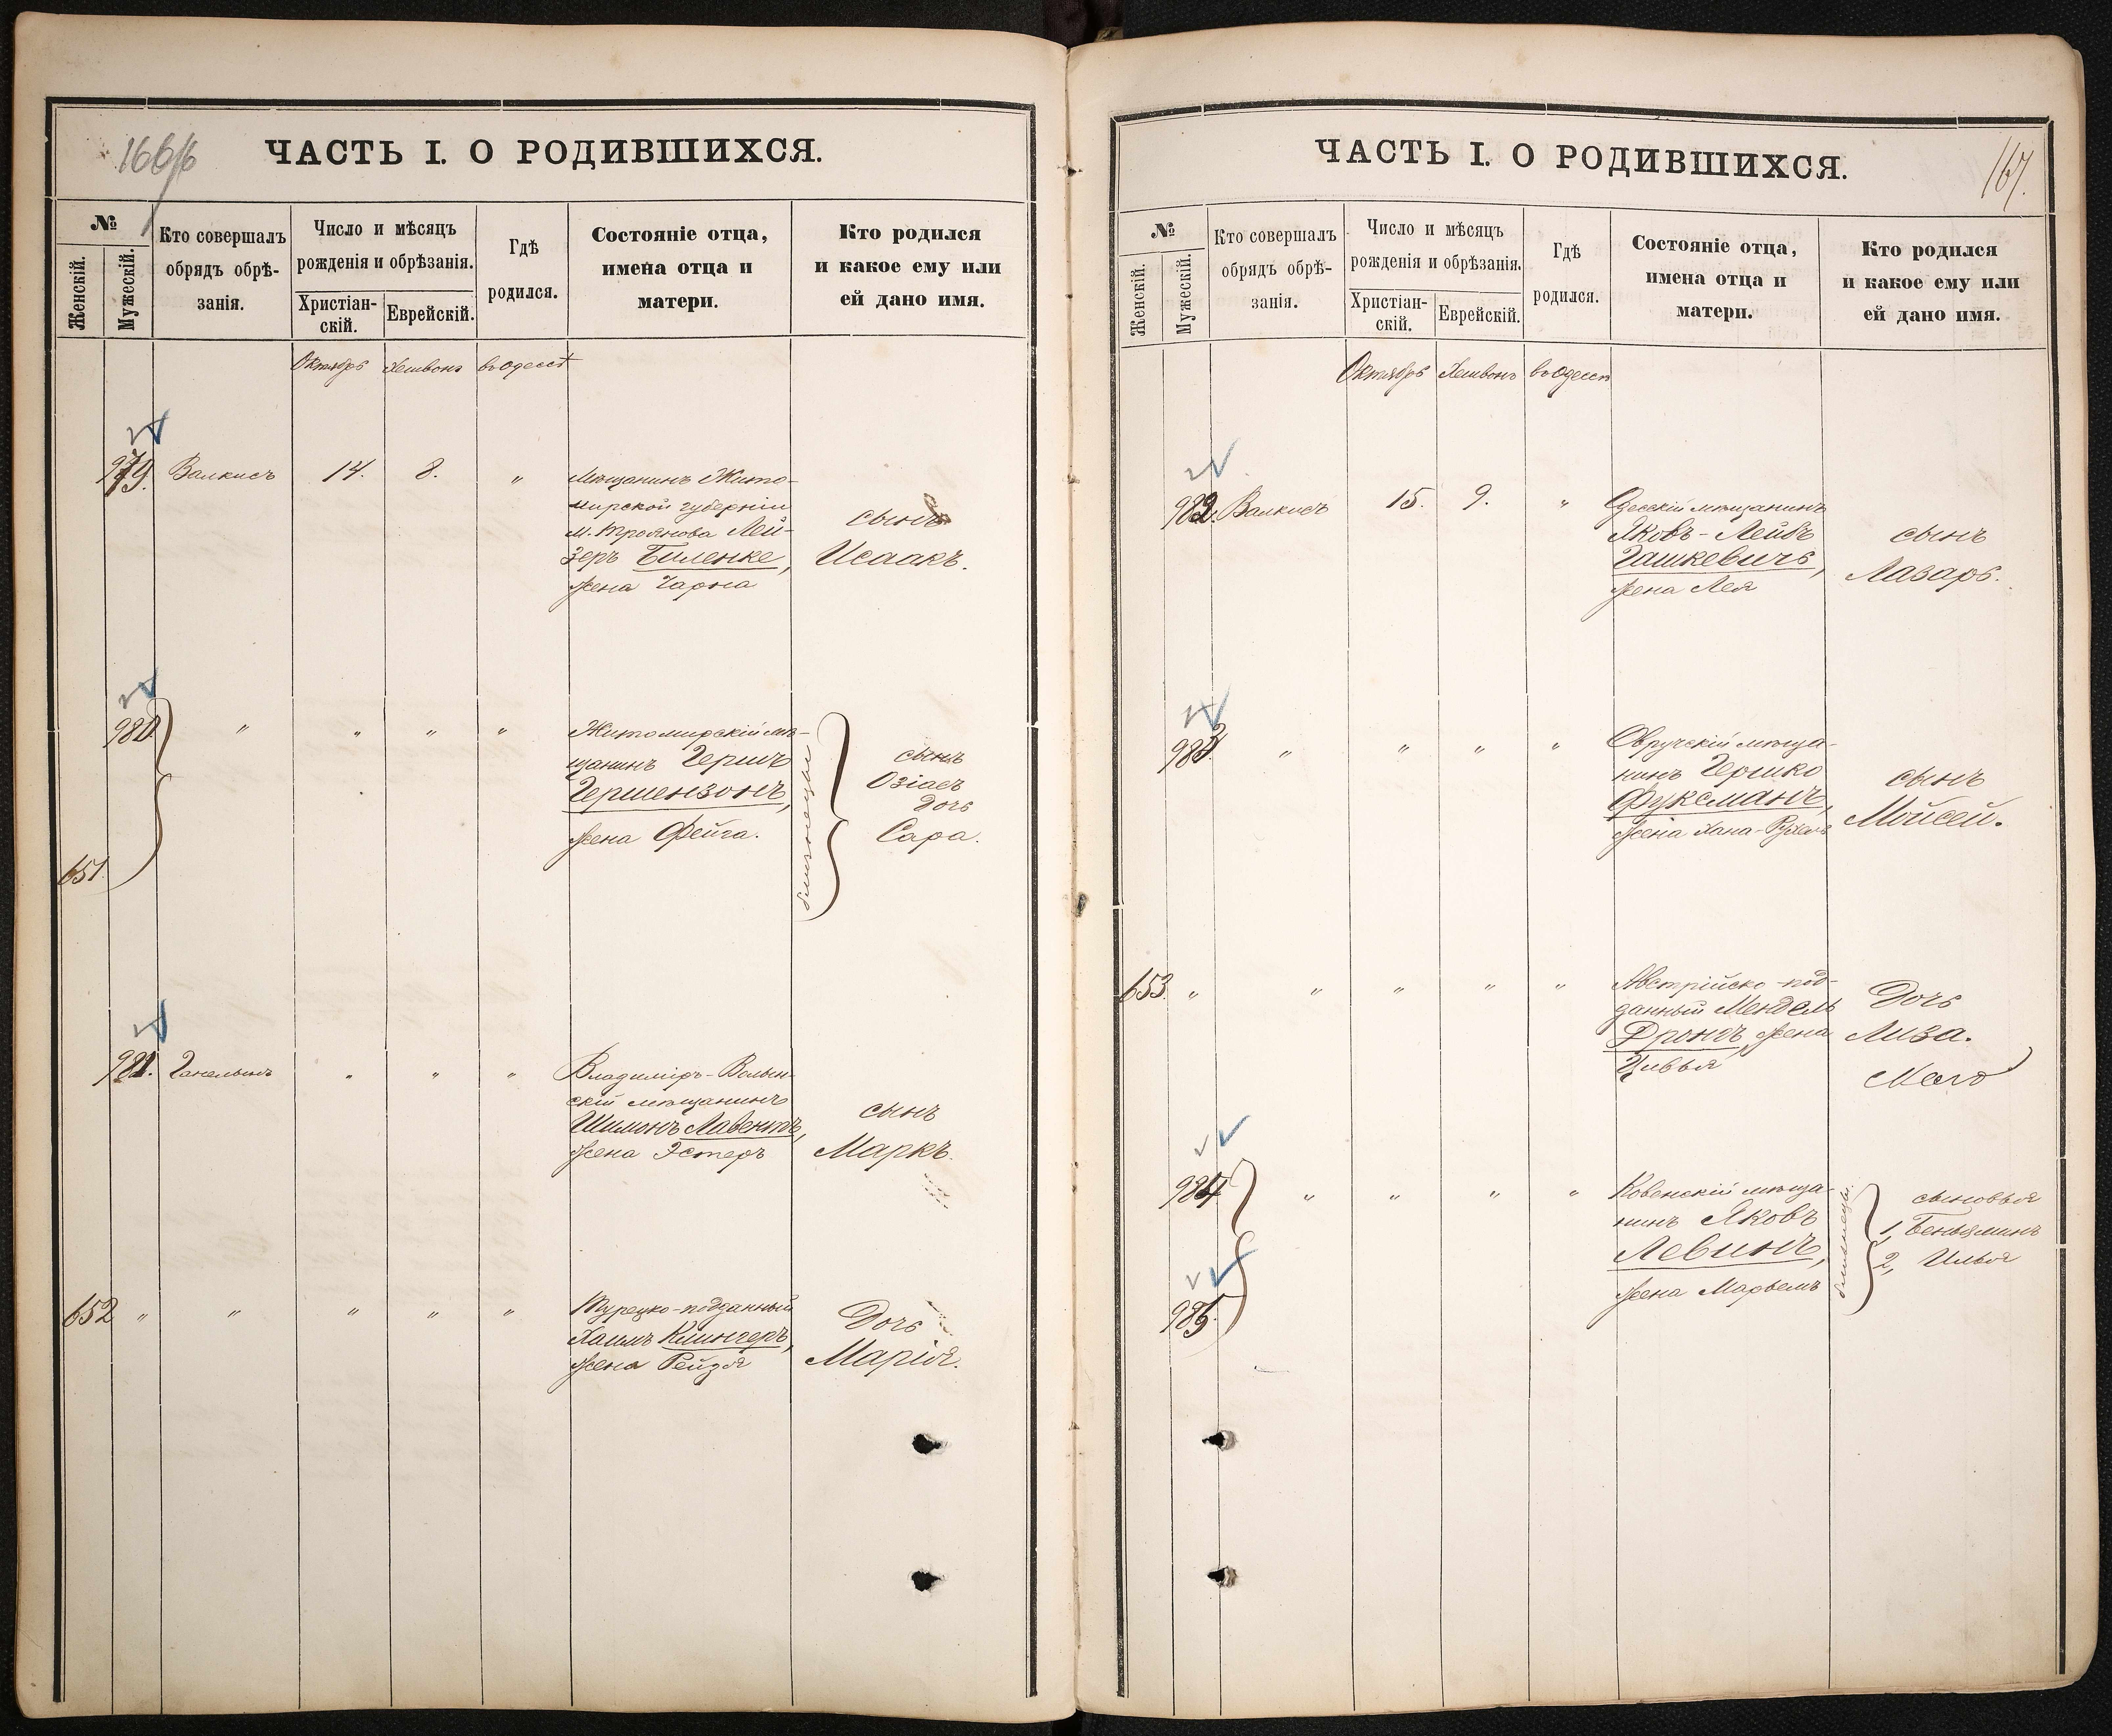 166 об
ЧАСТЬ I. О РОДИВШИХСЯ.
№
Женскій.
Мужескій.
Кто совершалъ
обрядъ обрѣ-
занія.
Число и мѣсяцъ
рожденія и обрѣзанія.
Христіан-
скій.
Еврейскій.
Гдѣ
родился.
Состояніе отца,
имена отца и
матери.
Кто родился
и какое ему или
ей дано имя.
Октябрь Хешвонъ въ Одессѣ
979. Валкисъ 14. 8. "
Мѣщанинъ Жито-
мирской губерніи
м. Троянова Лей-
зеръ Биленке,
жена Чарна
сынъ
Исаакъ.
980 " " " "
651.
Житомирскій мѣ-
щанинъ Гершъ
Гершензонъ,
жена Фейга.
близнецы
сынъ
Озіасъ
дочь
Сара.
981. " " "
Владиміръ-Волын-
скій мѣщанинъ
Шимонъ
жена Эстеръ
сынъ
Маркъ.
652 " " " " "
Турецко-подданный
Хаимъ
жена Рейзя
Дочь
Марія.
167.
ЧАСТЬ I. О РОДИВШИХСЯ.
№
Женскій.
Мужескій.
Кто совершалъ
обрядъ обрѣ-
занія.
Число и мѣсяцъ
рожденія и обрѣзанія.
Христіан-
скій.
Еврейскій.
Гдѣ
родился.
Состояніе отца,
имена отца и
матери.
Кто родился
и какое ему или
ей дано имя.
Октябрь Хешвонъ въ Одессѣ
982. Валкисъ 15. 9. "
Одесскій мѣщанинъ
Яковъ-Лейбъ
Гашкевичъ,
жена Лея
сынъ
Лазарь.
983. " " " "
Овручскій мѣща-
нинъ Гершко
Фуксманъ,
жена Хана-Рухель
сынъ
Мойсей.
653. " " " " "
Австрійско-под-
данный Мендель
Дрондъ, жена
Цивья
Дочь
Лиза.
984 " " " "
985.
Ковенскій мѣща-
нинъ Яковъ
Левинъ,
жена Марьемъ
близнецы.
сыновья
1, Беньяминъ
2, Илья